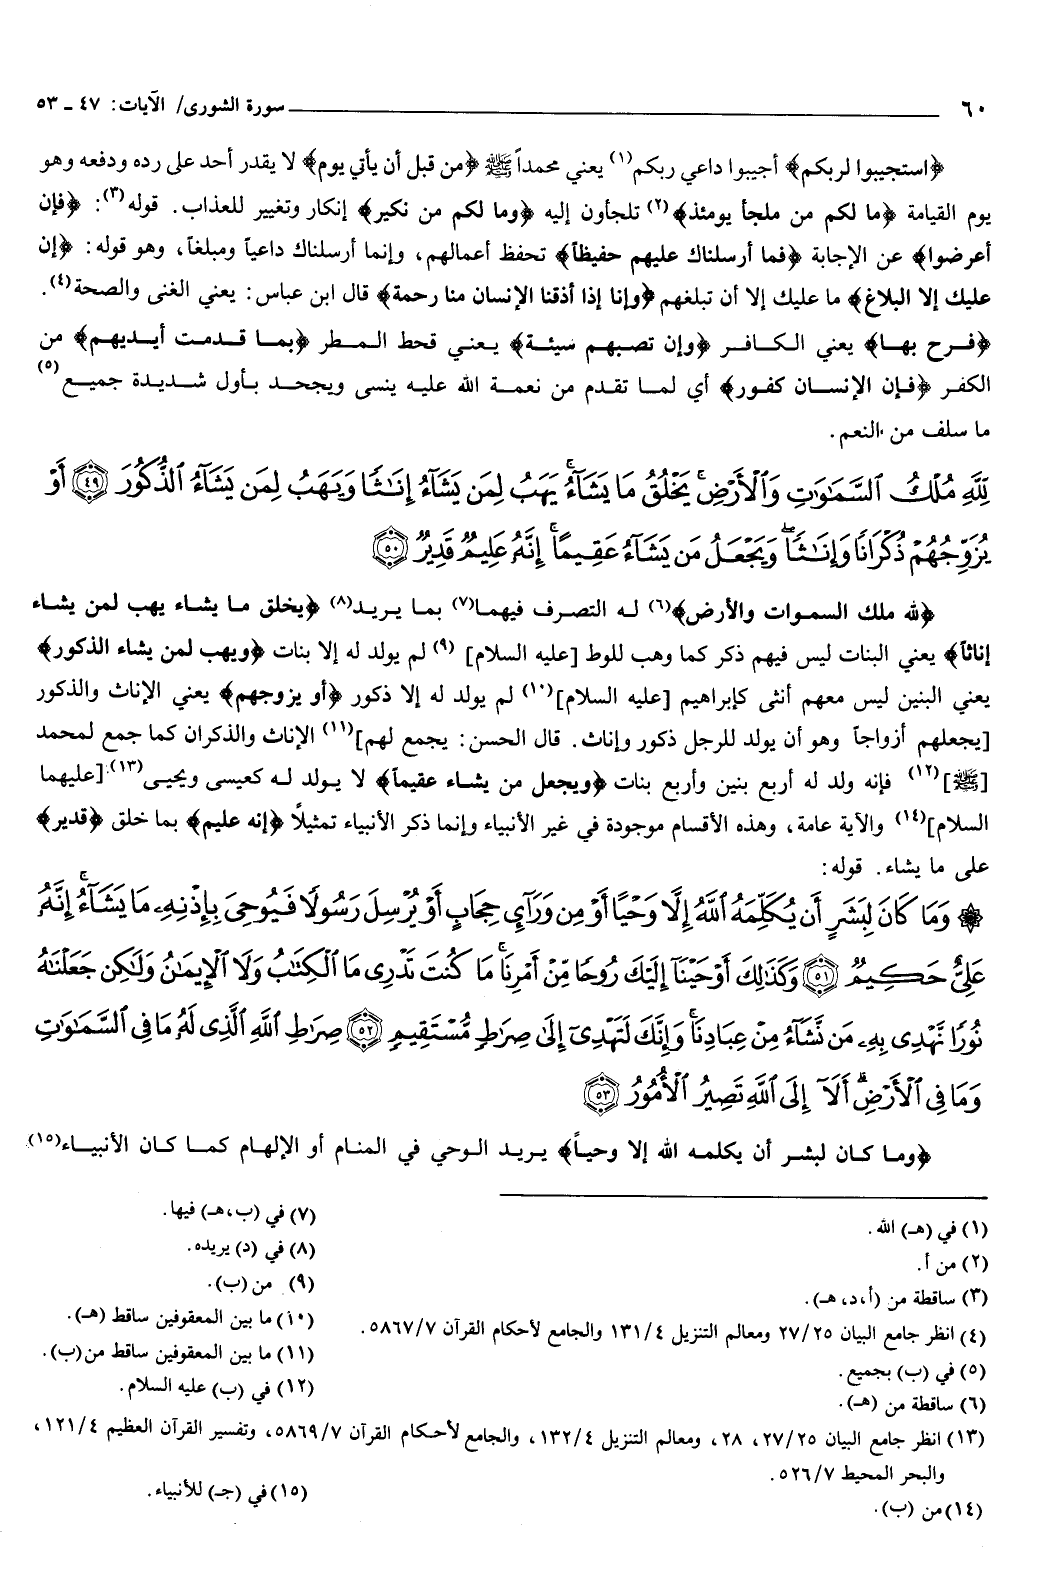 ٦٠ ــــ سورة الشورى/ الآيات: ٤٧ ـ ٥٣
﴿استجيبوا لربكم﴾ أجيبوا داعي ربكم(١) يعني محمداً ﷺ ﴿من قبل أن يأتي يوم﴾ لا يقدر أحد على رده ودفعه وهو
يوم القيامة ﴿ما لكم من ملجأ يومئذ﴾(٢) تلجأون إليه ﴿وما لكم من نكير﴾ إنكار وتغيير للعذاب. قوله(٣): ﴿فإن
أعرضوا﴾ عن الإجابة ﴿فما أرسلناك عليهم حفيظاً﴾ تحفظ أعمالهم، وإنما أرسلناك داعياً ومبلغاً، وهو قوله: ﴿إن
عليك إلا البلاغ﴾ ما عليك إلا أن تبلغهم ﴿وإنا إذا أذقنا الإنسان منا رحمة﴾ قال ابن عباس: يعني الغنى والصحة(٤).
﴿فرح بها﴾ يعني الكافر ﴿وإن تصبهم سيئة﴾ يعني قحط المطر ﴿بما قدمت أيديهم﴾ من
الكفر ﴿فإن الإنسان كفور﴾ أي لما تقدم من نعمة الله عليه ينسى ويجحد بأول شديدة جميع(٥)
ما سلف من النعم.
لِلَّهِ مُلْكُ السَّمَٰوَٰتِ وَالْأَرْضِ ۚ يَخْلُقُ مَا يَشَآءُ ۚ يَهَبُ لِمَن يَشَآءُ إِنَٰثًا وَيَهَبُ لِمَن يَشَآءُ الذُّكُورَ ﴿٤٩﴾ أَوْ
يُزَوِّجُهُمْ ذُكْرَانًا وَإِنَٰثًا ۖ وَيَجْعَلُ مَن يَشَآءُ عَقِيمًا ۚ إِنَّهُ عَلِيمٌ قَدِيرٌ ﴿٥٠﴾
﴿لله ملك السموات والأرض﴾(٦) له التصرف فيهما(٧) بما يريد(٨) ﴿يخلق ما يشاء يهب لمن يشاء
إناثاً﴾ يعني البنات ليس فيهم ذكر كما وهب للوط [عليه السلام](٩) لم يولد له إلا بنات ﴿ويهب لمن يشاء الذكور﴾
يعني البنين ليس معهم أنثى كإبراهيم [عليه السلام](١٠) لم يولد له إلا ذكور ﴿أو يزوجهم﴾ يعني الإناث والذكور
[يجعلهم أزواجاً وهو أن يولد للرجل ذكور وإناث. قال الحسن: يجمع لهم](١١) الإناث والذكران كما جمع لمحمد
[ﷺ](١٢) فإنه ولد له أربع بنين وأربع بنات ﴿ويجعل من يشاء عقيماً﴾ لا يولد له كعيسى ويحيى(١٣) [عليهما
السلام](١٤) والآية عامة، وهذه الأقسام موجودة في غير الأنبياء وإنما ذكر الأنبياء تمثيلاً ﴿إنه عليم﴾ بما خلق ﴿قدير﴾
على ما يشاء. قوله:
۞ وَمَا كَانَ لِبَشَرٍ أَن يُكَلِّمَهُ اللَّهُ إِلَّا وَحْيًا أَوْ مِن وَرَآئِ حِجَابٍ أَوْ يُرْسِلَ رَسُولًا فَيُوحِىَ بِإِذْنِهِ مَا يَشَآءُ ۚ إِنَّهُ
عَلِىٌّ حَكِيمٌ ﴿٥١﴾ وَكَذَٰلِكَ أَوْحَيْنَآ إِلَيْكَ رُوحًا مِّنْ أَمْرِنَا ۚ مَا كُنتَ تَدْرِى مَا الْكِتَٰبُ وَلَا الْإِيمَٰنُ وَلَٰكِن جَعَلْنَٰهُ
نُورًا نَّهْدِى بِهِ مَن نَّشَآءُ مِنْ عِبَادِنَا ۚ وَإِنَّكَ لَتَهْدِىٓ إِلَىٰ صِرَٰطٍ مُّسْتَقِيمٍ ﴿٥٢﴾ صِرَٰطِ اللَّهِ الَّذِى لَهُ مَا فِى السَّمَٰوَٰتِ
وَمَا فِى الْأَرْضِ ۗ أَلَآ إِلَى اللَّهِ تَصِيرُ الْأُمُورُ ﴿٥٣﴾
﴿وما كان لبشر أن يكلمه الله إلا وحياً﴾ يريد الوحي في المنام أو الإلهام كما كان الأنبياء(١٥)
(١) في (هـ) الله.
(٢) من أ.
(٣) ساقطة من (أ، د، هـ).
(٤) انظر جامع البيان ٢٧/٢٥ ومعالم التنزيل ١٣١/٤ والجامع لأحكام القرآن ٥٨٦٧/٧.
(٥) في (ب) بجميع.
(٦) ساقطة من (هـ).
(٧) في (ب، هـ) فيها.
(٨) في (د) يريده.
(٩) من (ب).
(١٠) ما بين المعقوفين ساقط (هـ).
(١١) ما بين المعقوفين ساقط من (ب).
(١٢) في (ب) عليه السلام.
(١٣) انظر جامع البيان ٢٧/٢٥، ٢٨، ومعالم التنزيل ١٣٢/٤، والجامع لأحكام القرآن ٥٨٦٩/٧، وتفسير القرآن العظيم ١٢١/٤،
والبحر المحيط ٥٢٦/٧.
(١٤) من (ب).
(١٥) في (جـ) للأنبياء.